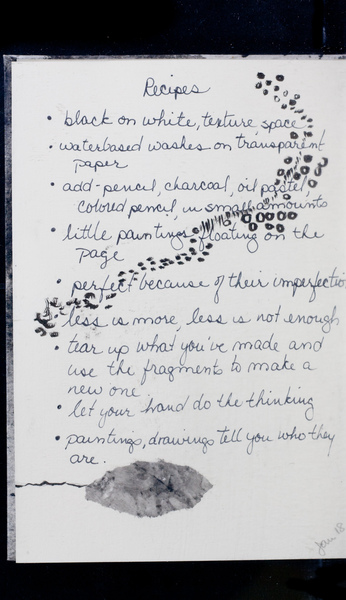 Recipes
• black on white, texture, space
• waterbased washes on transparent
paper
• add-pencil, charcoal, oil pastel,
colored pencil, in small amounts
• little paintings floating on the
page
• perfect because of their imperfectio
• less is more, less is not enough
• tear up what you've made and
use the fragments to make a
new one
• let your hand do the thinking
• paintings, drawings tell you who they
are.
Jan 18